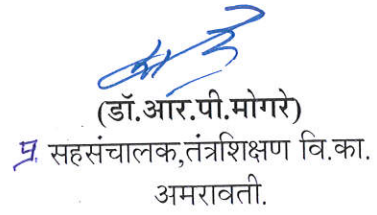 (डॉ.आर.पी.मोगरे)
प्र. सहसंचालक,तंत्रशिक्षण वि.का.
अमरावती.